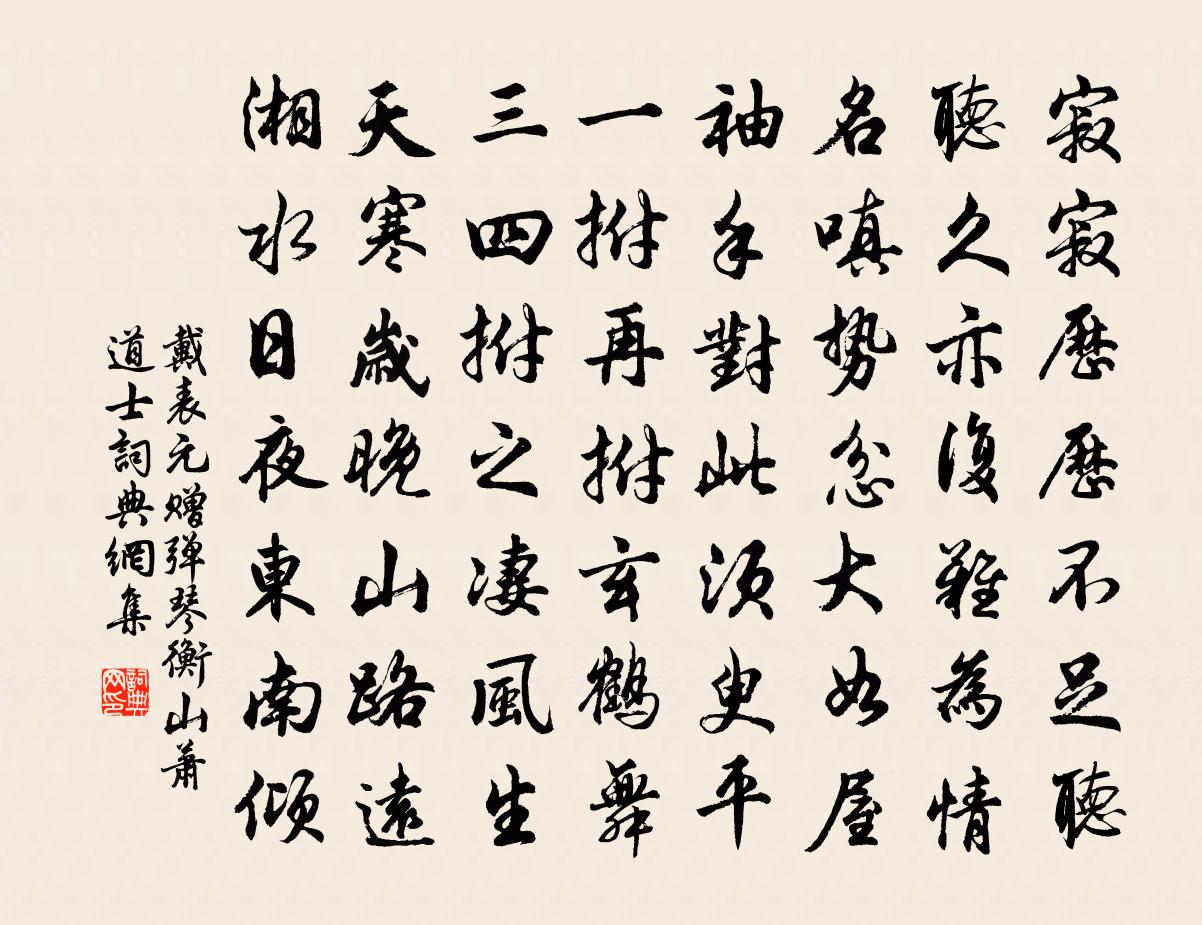 寂寂歷歷不足聽
聽久亦復難為情
名嗔勢忿大如屋
袖手對此須臾平
一拊再拊玄鶴舞
三四拊之凄風生
天寒歲晚山路遠
湘水日夜東南傾
戴表元贈彈琴衡山蕭
道士詞典網集
詞典
网印